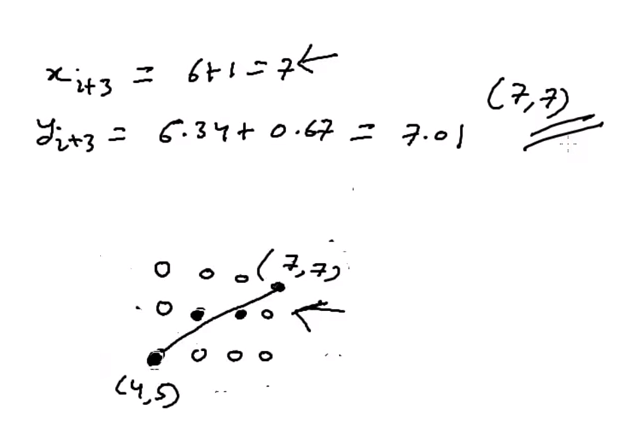 x_{i+3} = 6+1 = 7 ←
y_{i+3} = 6.34 + 0.67 = 7.01
(7,7)
(7,7)
(4,5)